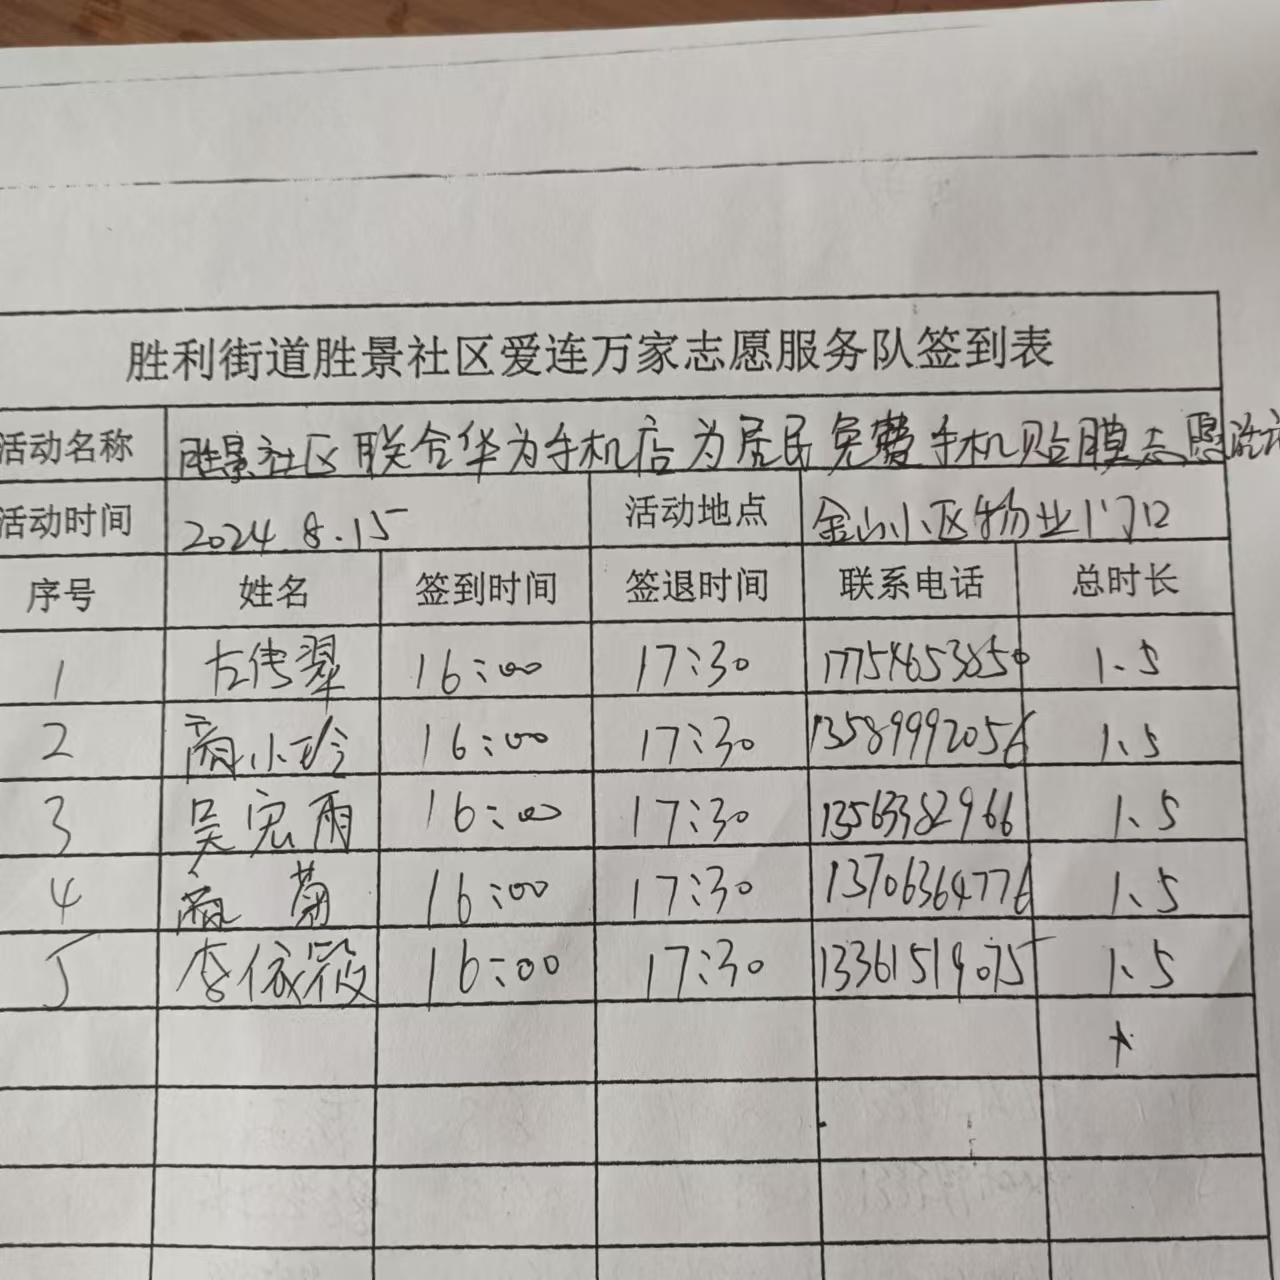 胜利街道胜景社区爱连万家志愿服务队签到表
活动名称 胜景社区联合华为手机店为居民免费手机贴膜志愿活动
活动时间 2024.8.15 活动地点 金山小区物业门口
序号 姓名 签到时间 签退时间 联系电话 总时长
1 左传翠 16:00 17:30 17754653850 1.5
2 商小玲 16:00 17:30 13589992056 1.5
3 吴宪雨 16:00 17:30 13563382966 1.5
4 商菊 16:00 17:30 13706364776 1.5
5 李依筱 16:00 17:30 13361519075 1.5